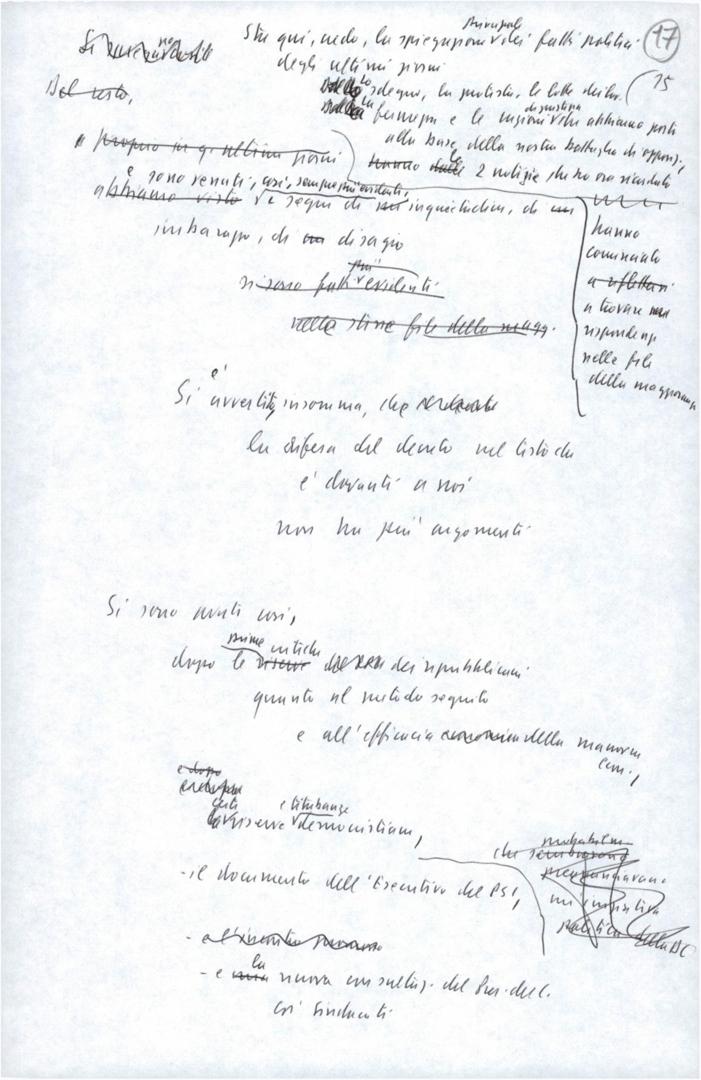 17
Sta qui, credo, la spiegazione principale dei fatti politici
degli ultimi giorni
15
Del resto,
Lo sdegno, la protesta, le lotte
la fermezza e le
alla base della nostra battaglia di opposiz.,
e proprio in q. ultimi giorni
hanno le 2 notizie che ho ora ricordato
e sono venuti, così, sempre più evidenti,
abbiamo visto segni di inquietudine, di un
imbarazzo, di un disagio
hanno
cominciato
a riflettersi
a trovare
rispondenza
nelle file
della maggioranza
si sono fatti più evidenti
nelle stesse file della magg.
Si è avvertito, insomma, che
la difesa del decreto nel testo che
è davanti a noi
non ha più argomenti
Si sono avuti così,
prime critiche
dopo le riserve dei repubblicani
quanto al metodo seguito
e all'efficacia della manovra
econ.,
e dopo
certe e titubanze
riserve democristiane,
che sembravano
- il documento dell'Esecutivo del PSI,
politica della DC
- e la nuova consultaz. del Pres. del C.
coi sindacati